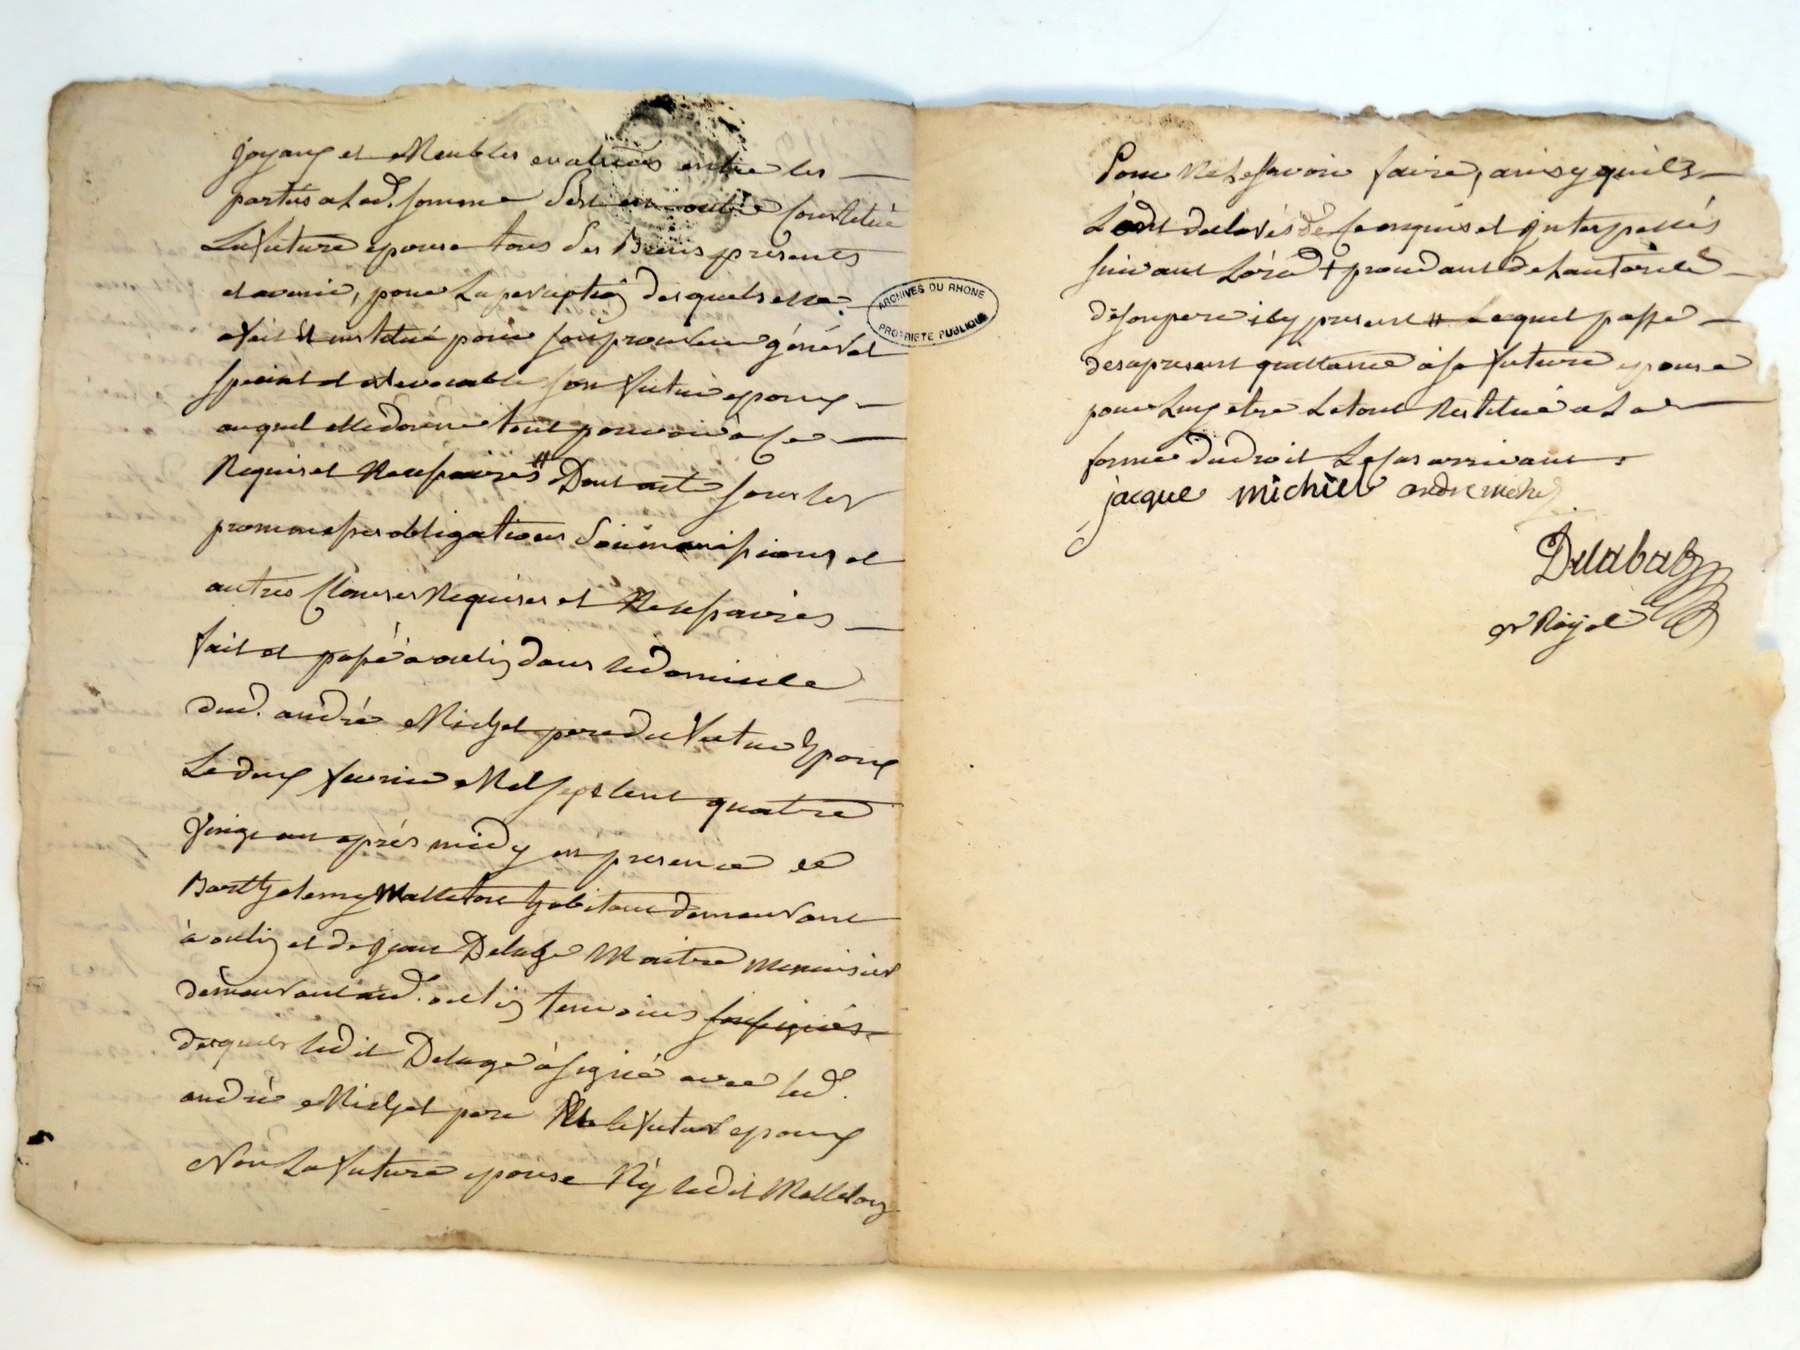 joyaux et Meubles evalués entre les
parties a lad. somme s'est en outre constitué
La future epouse tous ses Biens presents
et avenir, pour la perception desquels elle
a fait et institué pour son procureur général
special et irrevocable son futur epoux
auquel elle donne tout pouvoir à ce
Requis et Necessaires # Dont acte sous les
promesses obligations soumissions et
autres Clauses Requises et Necessaires
fait et passé à oullin dans le domicile
dud. andré Michel pere du futur Epoux
Le deux fevrier Mil sept cent quatre
vingt un après midy en presence de
Barthelemy Malleton habitant demeurant
à oullin et de jean Delage Maitre menuisier
demeurant aud. oullin temoins soussignés
desquels ledit Delage à signé avec led.
andré Michel pere et le futur epoux
Non La future epouse Ny ledit Malleton
ARCHIVES DU RHONE
PROPRIETE PUBLIQUE
Pour Ne le savoir faire, ainsy quils
L'ont declarés de ce enquis et interpellés
suivant L'ord + procedant de L'autorité
de son pere icy present # Lequel passe
des apresent quittance à sa future epouse
pour Luy etre Le tout Restitué a La
forme du droit Le cas arrivant.
jacque michiel andre michel
Delabat